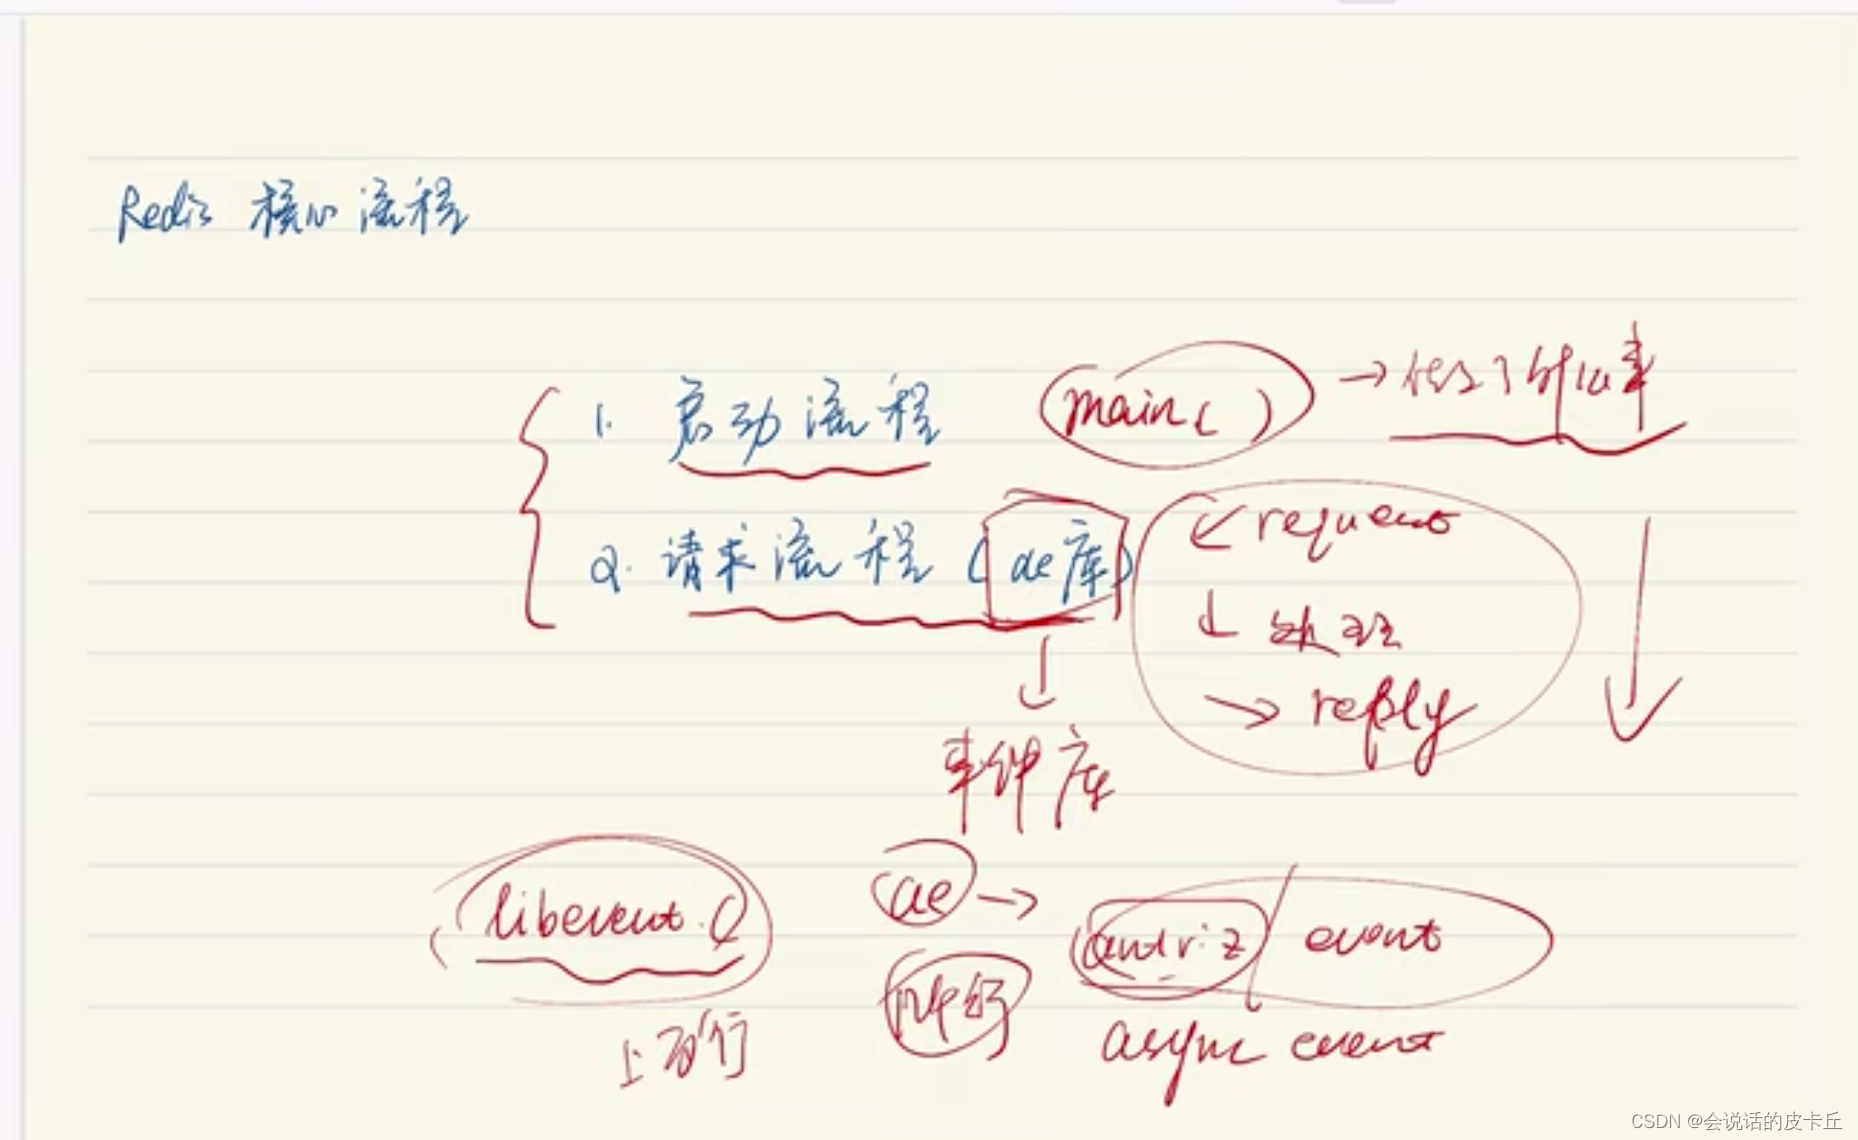 Redis 核心流程
1. 启动流程 main( ) → 做了什么事
2. 请求流程 (ae库)
← request
↓ 处理
→ reply
↓
事件库
libevent.c ae → antirez / event
上万行 async event
CSDN @会说话的皮卡丘